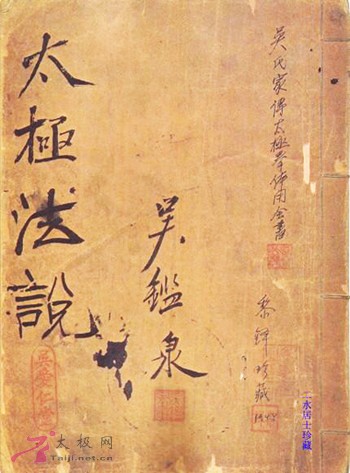 吴氏家傳太極拳体用全書
珍藏
二水居士珍藏
吳鑑泉
太極法說
太极网
Taiji.net.cn